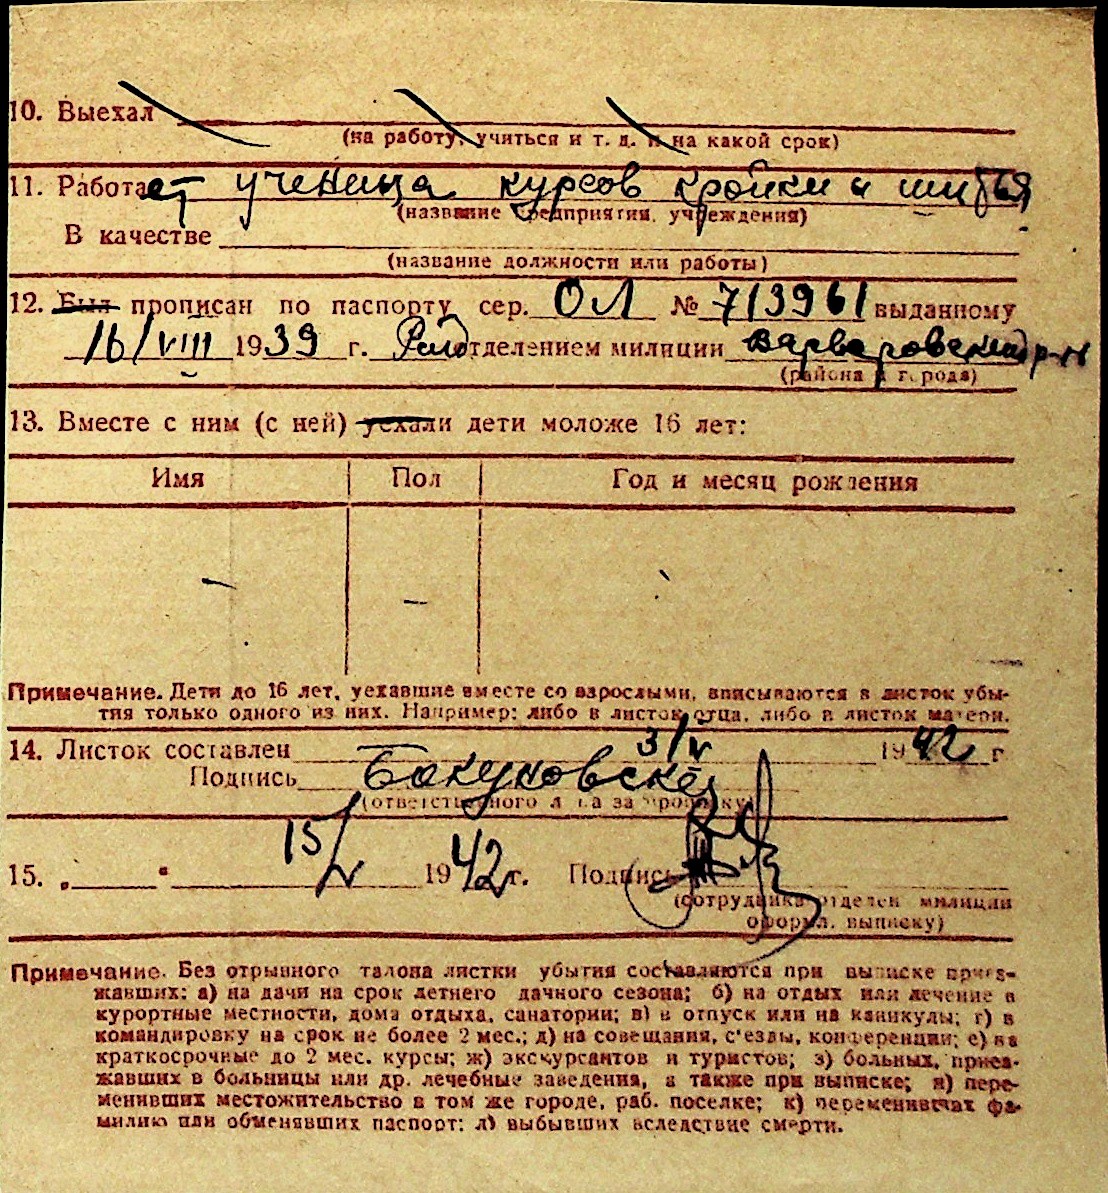 10. Выехал
(на работу, учиться и т. д. и на какой срок)
11. Работает ученица курсов кройки и шитья
(название предприятия, учреждения)
В качестве
(название должности или работы)
12. Был прописан по паспорту сер. ОЛ № 713961 выданному
16/VIII 1939 г. отделением милиции Варваровским р-н
(района и города)
13. Вместе с ним (с ней) уехали дети моложе 16 лет:
Имя Пол Год и месяц рождения
— —
Примечание. Дети до 16 лет, уехавшие вместе со взрослыми, вписываются в листок убы-
тия только одного из них. Например: либо в листок отца, либо в листок матери.
14. Листок составлен 3/V 1942 г
Подпись
(ответственного лица за прописку)
15. „ “ 15/V 1942 г. Подпись
(сотрудника отделен милиции
оформ. выписку)
Примечание. Без отрывного талона листки убытия составляются при выписке приез-
жавших: а) на дачи на срок летнего дачного сезона; б) на отдых или лечение в
курортные местности, дома отдыха, санатории; в) в отпуск или на каникулы; г) в
командировку на срок не более 2 мес.; д) на совещания, с'езды, конференции; е) на
краткосрочные до 2 мес. курсы; ж) экскурсантов и туристов; з) больных, приез-
жавших в больницы или др. лечебные заведения, а также при выписке; и) пере-
менивших местожительство в том же городе, раб. поселке; к) переменивших фа-
милию или обменявших паспорт; л) выбывших вследствие смерти.